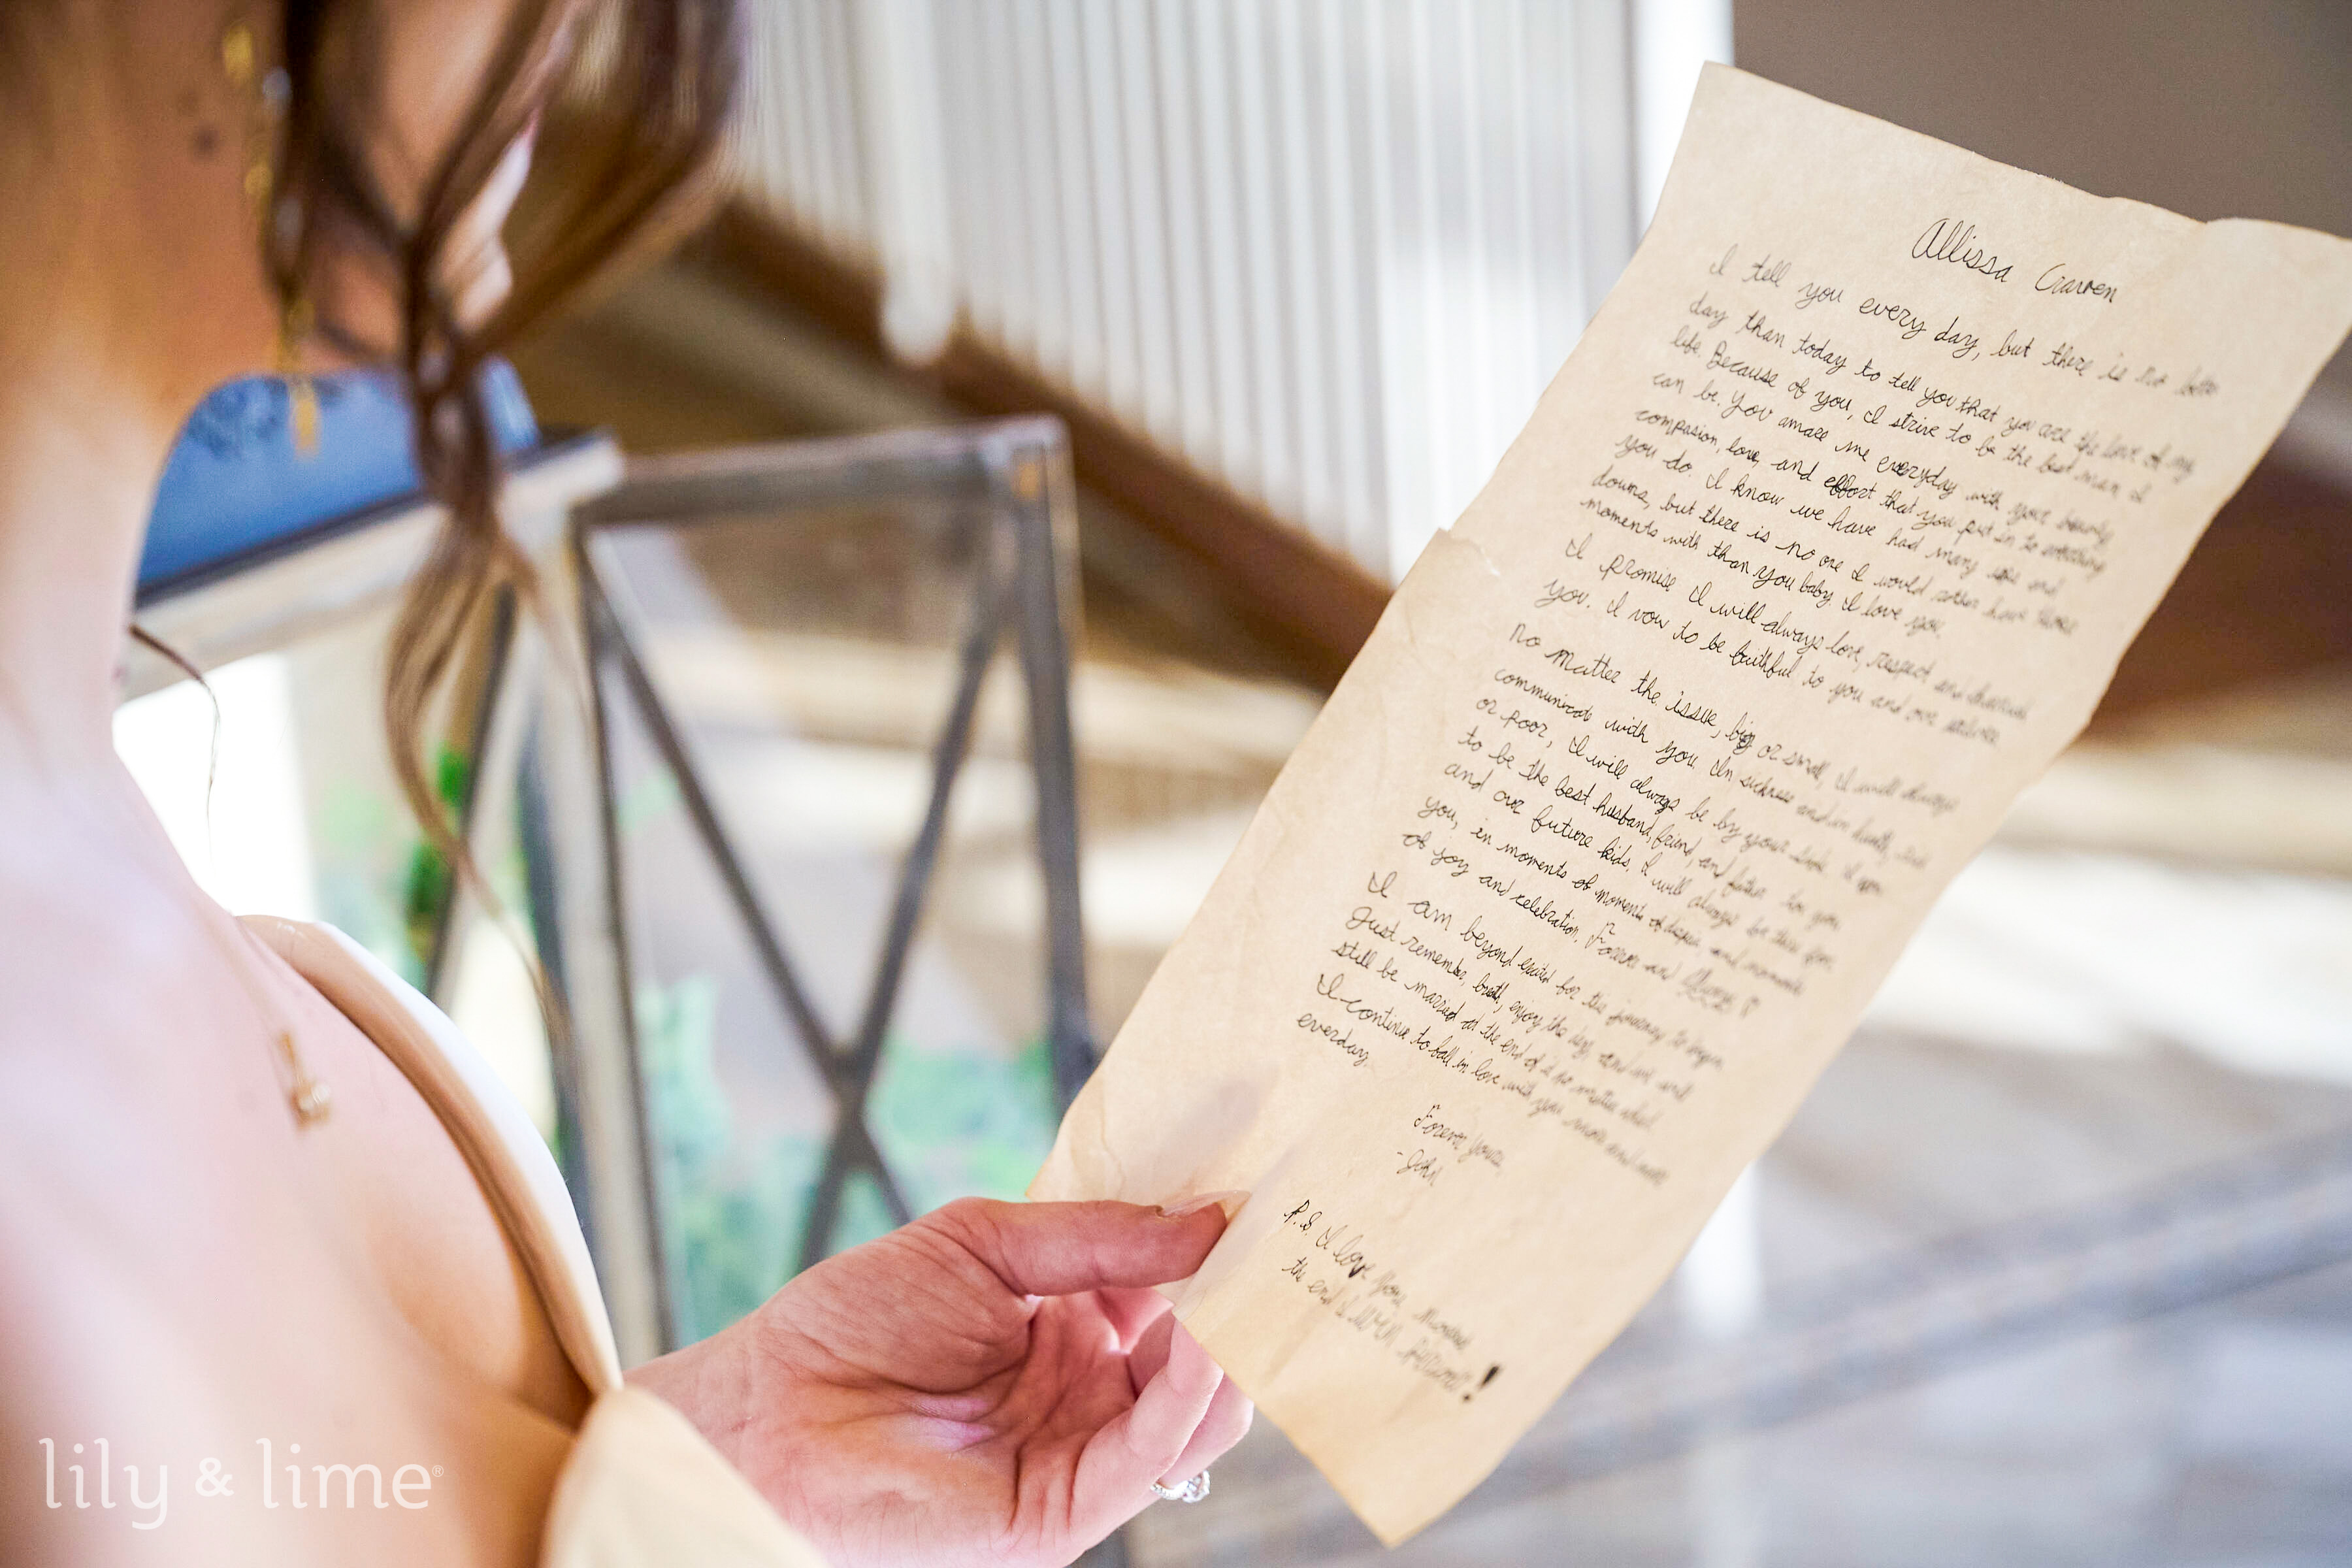 Allissa
I tell you every day, but there is no
day than today to tell you that you are the love of my
life. Because of you, I strive to be the best man I
can be. You amaze me everyday with your beauty,
compasion, love, and effort that you put in to everything
you do. I know we have had many ups and
downs, but there is no one I would rather have those
moments with than you baby. I love you.
I promise I will always love, respect and
you. I vow to be faithful to you and our
No matter the issue, big or small, I will always
communicate with you. In sickness and in health, rich
or poor, I will always be by your side. I vow
to be the best husband, friend, and father to you
and our future kids. I will always be there for
you, in moments of moments of and moments
of joy and celebration. Forever and Always
I am beyond excited for this journey to begin.
Just remember, enjoy the day, and we will
still be married at the end of it no matter what.
I continue to fall in love with you more and more
everday.
Forever yours,
-John
P.S. I love you,
the end I
lily & lime®